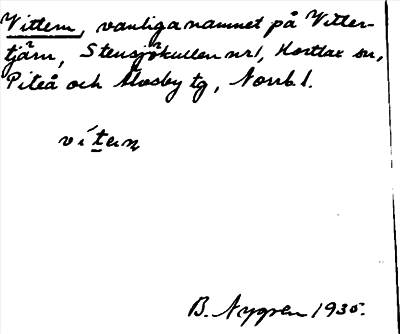 Vittern, vanliga namnet på Vitter-
tjärn, Stensjökullen nr 1, Hortlax sn,
Piteå och Älvsby tg, Norrb l.
B. Nygren 1935.